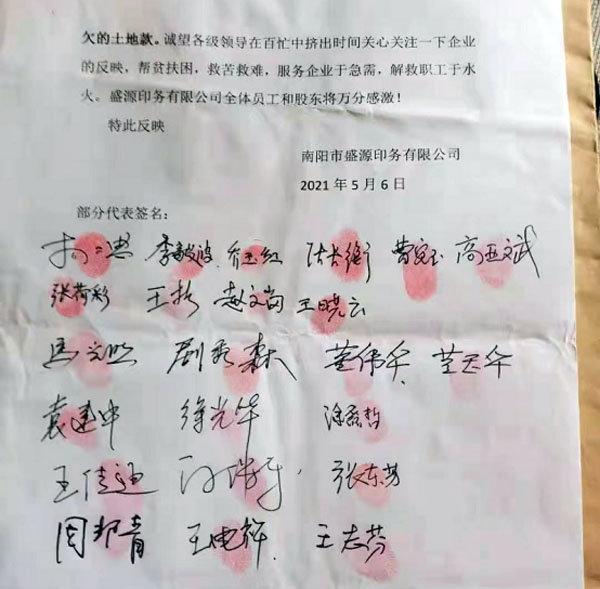 欠的土地款。诚望各级领导在百忙中挤出时间关心关注一下企业
的反映，帮贫扶困，救苦救难，服务企业于急需，解救职工于水
火。盛源印务有限公司全体员工和股东将万分感激！
特此反映
南阳市盛源印务有限公司
2021 年 5 月 6 日
部分代表签名：
乔玉红 曹宝玉 高亚文斌
张荷彩 赵文岗 王晓云
刷秀森 董伟
袁建中 徐光华
王佳迪 张东芳
周邦青 王电辉 王志芬